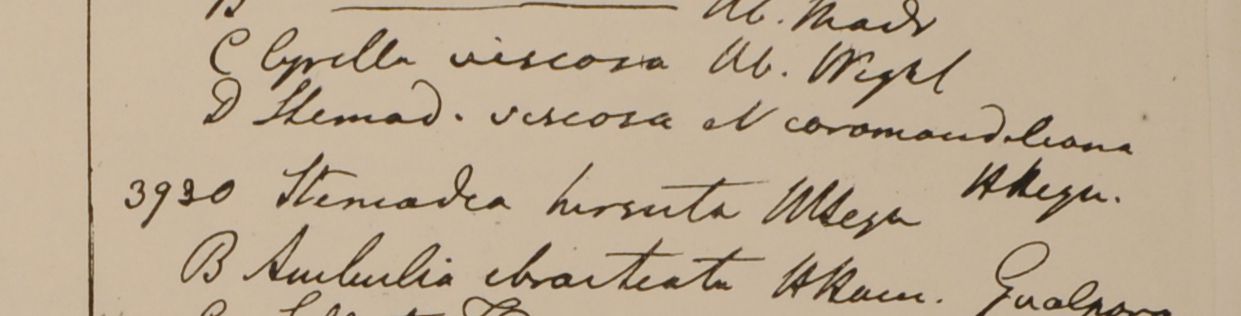 B ———— Hb. Madr
C Cyrilla viscosa Hb. Wight
D Stemod. viscosa et coromandeliana
HHeyn.
3930 Stemodea hirsuta HHeyn
B Ambulia ebracteata HHam. Gualpara